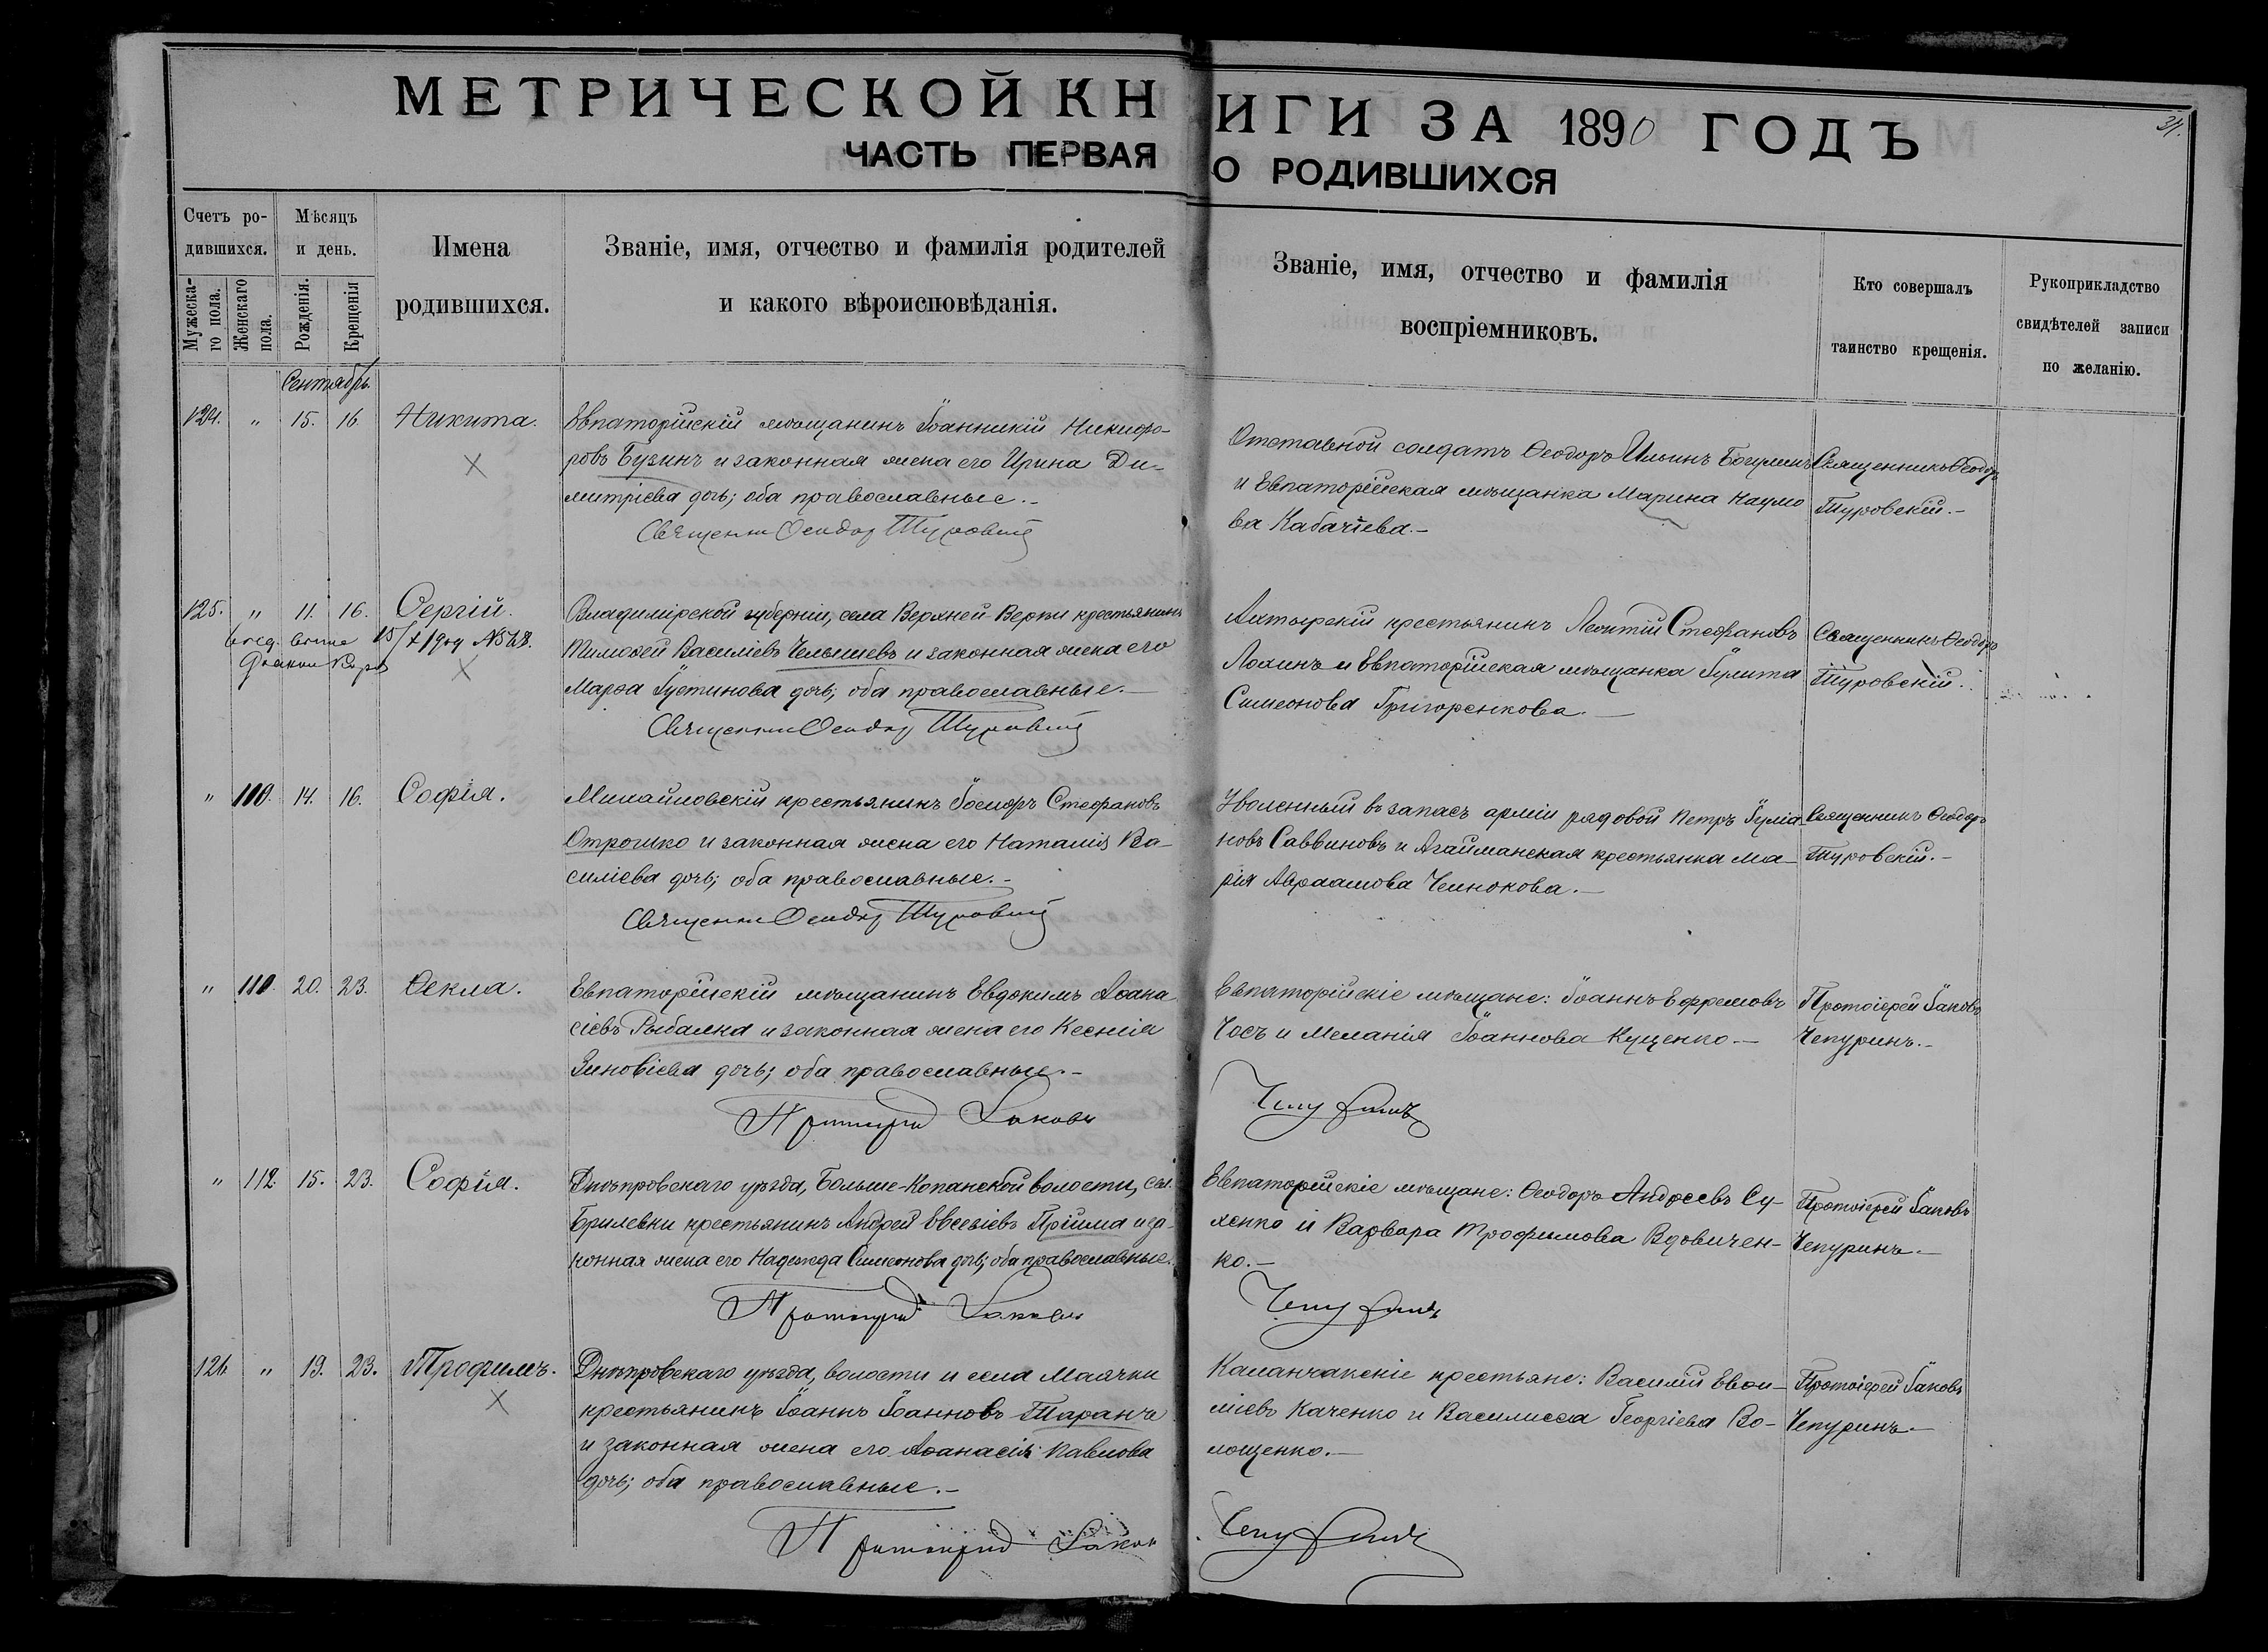 МЕТРИЧЕСКОЙ КНИГИ ЗА 1890 ГОДЪ
34.
ЧАСТЬ ПЕРВАЯ О РОДИВШИХСЯ
Счетъ родившихся.
Мужескаго пола.
Женскаго пола.
Мѣсяцъ и день.
Рожденія.
Крещенія
Имена
родившихся.
Званіе, имя, отчество и фамилія родителей
и какого вѣроисповѣданія.
Званіе, имя, отчество и фамилія
воспріемниковъ.
Кто совершалъ
таинство крещенія.
Рукоприкладство
свидѣтелей записи
по желанію.
Сентябрь.
124. " 15. 16. Никита.
Евпаторійскій мѣщанинъ Іоанникій Никифо-
ровъ Бузинъ и законная жена его Ирина Ди-
митріева дочь; оба православные.-
Священник Ѳеодор Туровский
Отставной солдатъ Ѳеодоръ Ильинъ
и Евпаторійская мѣщанка Марина Наумо
ва Кабачіева.-
Священникъ Ѳеодоръ
Туровскій.-
125. " 11. 16. Сергій.
Владимірской губерніи, села Верхней-Верки крестьянинъ
Тимоѳей Василіевъ Челышевъ и законная жена его
Марѳа Іустинова дочь; оба православные.-
Священник Ѳеодор Туровский
Ахтырскій крестьянинъ Леонтій Стефановъ
Лохинъ и Евпаторійская мѣщанка Іулита
Симеонова Григоренкова.-
Священникъ Ѳеодоръ
Туровскій.
" 110. 14. 16. Софія.
Михайловскій крестьянинъ Іосифъ Стефановъ
Отрошко и законная жена его Наталія Ва-
силіева дочь; оба православные.-
Священник Ѳеодор Туровский
Уволенный въ запасъ арміи рядовой Петръ Іуліа-
новъ Саввиновъ и Агайманская крестьянка Ма-
рія Авраамова Челнокова.-
Священникъ Ѳеодоръ
Туровскій.-
" 111. 20. 23. Ѳекла.
Евпаторійскій мѣщанинъ Евдокимъ Аѳана
сіевъ Рыбалка и законная жена его Ксенія
Зиновіева дочь; оба православные.-
Протоіерей Іаковъ
Евпаторійскіе мѣщане: Іоаннъ Ефремовъ
Чосъ и Меланія Іоаннова Куценко.-
Чепуринъ
Протоіерей Іаковъ
Чепуринъ.-
" 112. 15. 23. Софія.
Днѣпровскаго уѣзда, Больше-Копанской волости, сел.
Брилевки крестьянинъ Андрей Евсевіевъ Пріима и за-
конная жена его Надежда Симеонова дочь; оба православные.
Протоіерей Іаковъ
Евпаторійскіе мѣщане: Ѳеодоръ Андреевъ Су-
хенко и Варвара Трофимова Вдовичен-
ко.-
Чепуринъ
Протоіерей Іаковъ
Чепуринъ.-
126 " 19. 23. Трофимъ.
Днѣпровскаго уѣзда, волости и села Маячки
крестьянинъ Іоаннъ Іоанновъ Таранъ
и законная жена его Аѳанасія Павлова
дочь; оба православные.-
Протоіерей Іаков
Каланчакскіе крестьяне: Василій Евѳи-
міевъ Каченко и Василисса Георгіева Во-
лощенко.-
Чепуринъ
Протоіерей Іаковъ
Чепуринъ.-